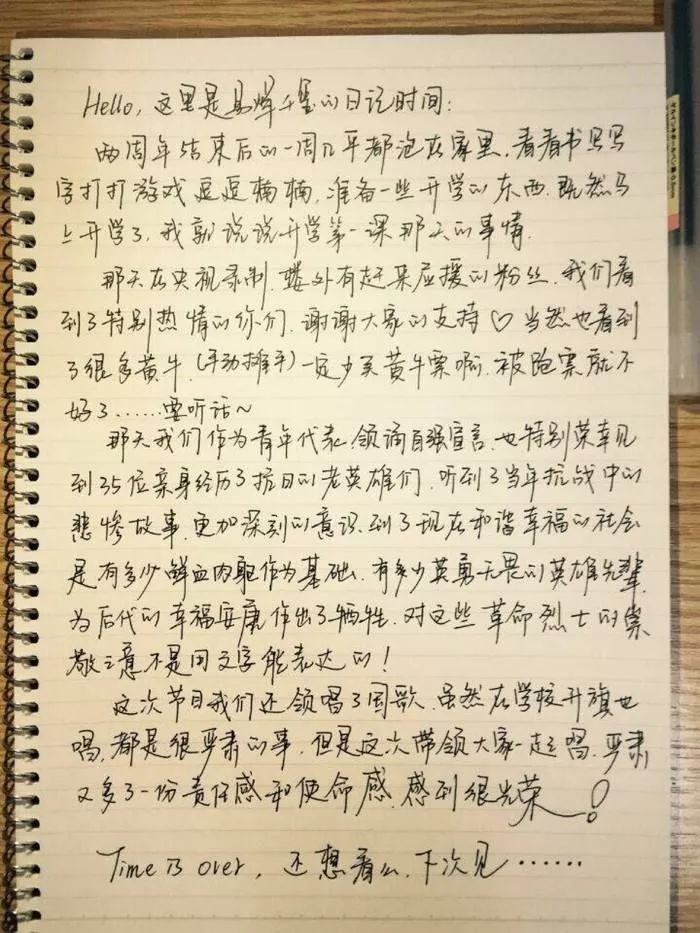 Hello, 这里是易烊千玺的日记时间:
两周年结束后的一周几乎都泡在家里,看看书写写
字打打游戏逗逗楠楠,准备一些开学的东西.既然马
上开学了,我就说说开学第一课那天的事情.
那天在央视录制,楼外有赶来应援的粉丝,我们看
到了特别热情的你们,谢谢大家的支持♡当然也看到
了很多黄牛.(手动摊手)一定少买黄牛票啊.被跑票就不
好了……要听话~
那天我们作为青年代表,领诵自强宣言,也特别荣幸见
到35位亲身经历了抗日的老英雄们,听到了当年抗战中的
悲惨故事,更加深刻的意识到了现在和谐幸福的社会
是有多少鲜血肉躯作为基础,有多少英勇无畏的英雄先辈,
为后代的幸福安康作出了牺牲.对这些革命烈士的崇
敬之意不是用文字能表达的!
这次节目我们还领唱了国歌,虽然在学校升旗也
唱,都是很严肃的事,但是这次带领大家一起唱,严肃
又多了一份责任感和使命感,感到很光荣!
Time is over, 还想看么,下次见……